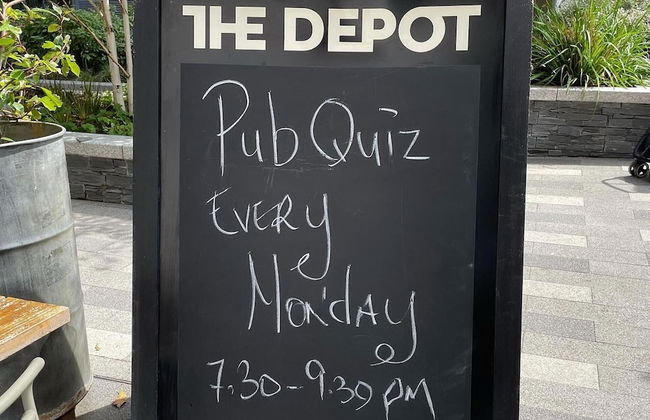 THE DEPOT
Pub Quiz
EVERY
Monday
7.30-9.30 PM